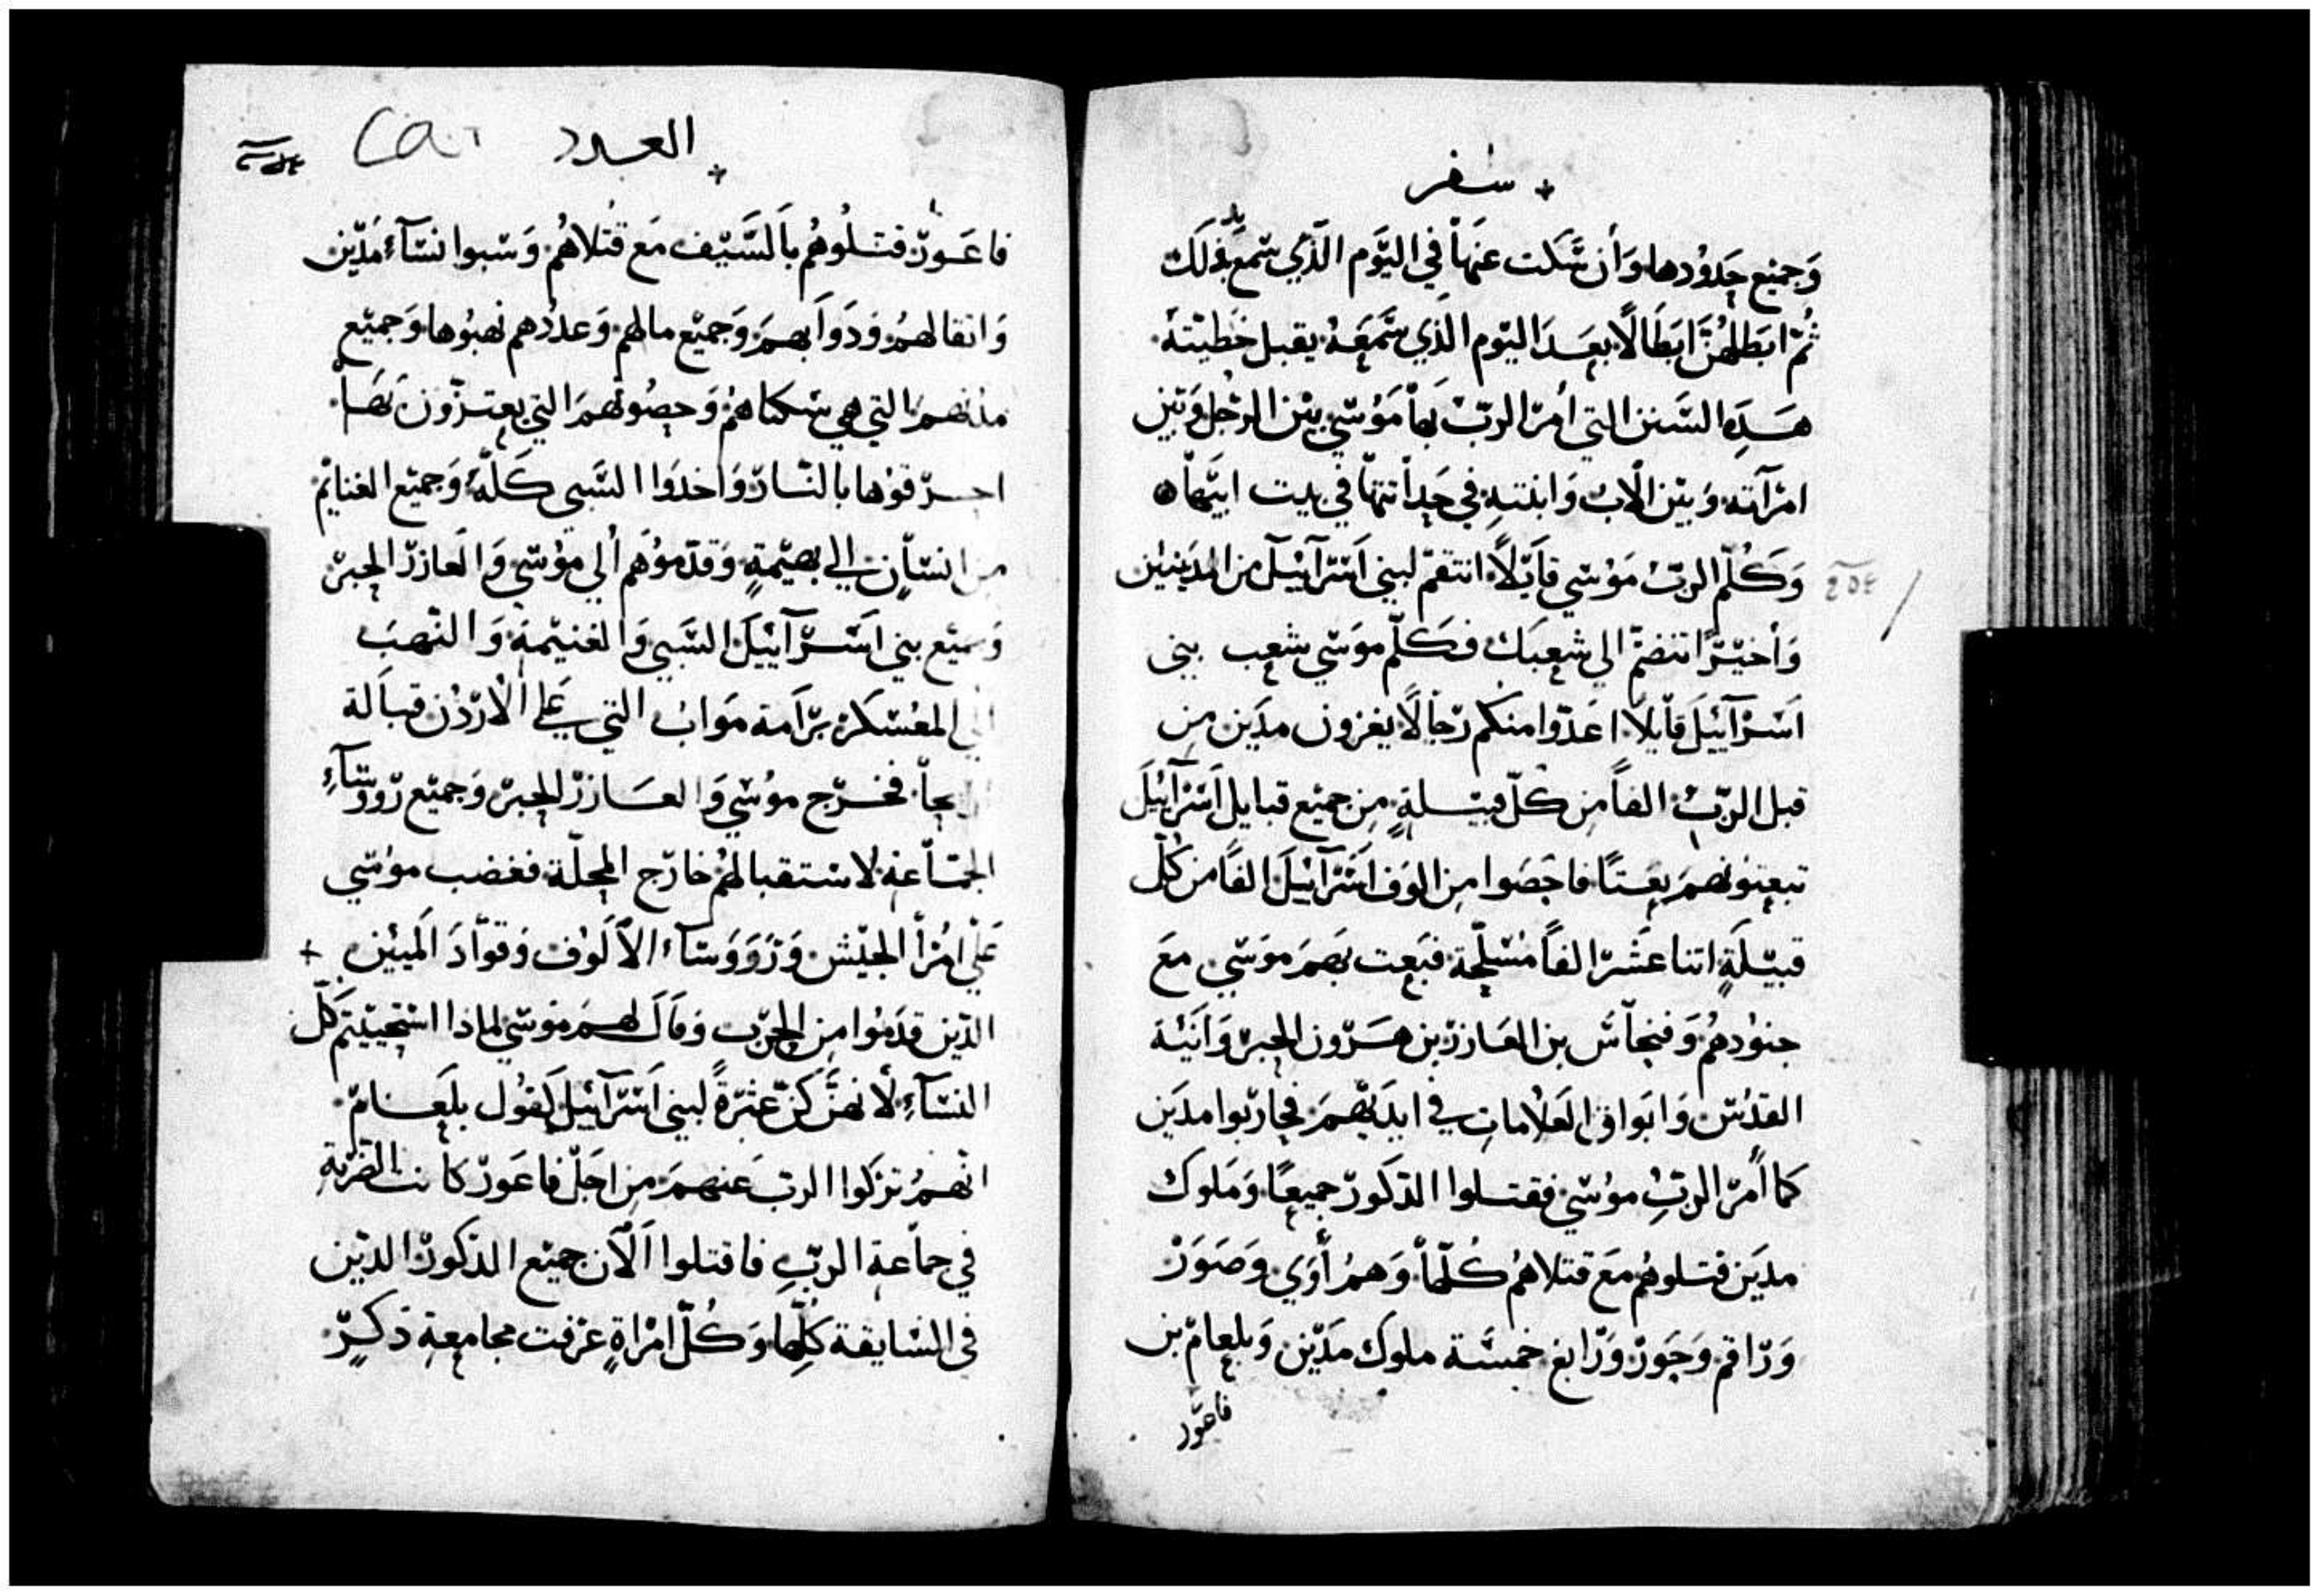 سفر
وَجميع حدُودها وَأن سَكت عنهَا في اليَوم الَّذي سَمع بذلَك
ثُمّ ابَطلهُنَّ ابَطَالًا بعَدَ اليَوم الَّذي سَمَعَهُ يقبل خَطيّتهُ
هَذِه السَنن التي أمرَ الربّ بهَا مَوُسَي بيْن الرجُل وَبيَن
امرَآته وَبيَن الاب وَابنتهِ في حَداثتهَا في بيت ابيَهَا
وَكُلّم الربّ مَوُسَي قَآيلًا انتقمَ لبني اَسَرَآيَيل من المَديَنيَين
وَأخيَرًا تنضمّ الي شعبَك فكَلّم موَسَي شعب بني
اَسَرَآيَيلَ قَآيلًا اعَدّوا منكم رجَالًا يغزون مدَين مِن
قبل الربّ الفاً مِن كلّ قبيَلةٍ مِن جميَع قبايل اَسَرَآيَيلَ
تبعثونهمَ بعَثًا فاحَصَوا مِن الوَف اَسَرَآيَيلَ الفًا من كُلّ
قبيَلةٍ اتنا عَشَرَ الفًا مُسَلّحة فبَعت بَهمَ موَسَي مَعَ
جنوُدهُم وَفنحاَس بن العَازرَ بن هَرَون الحبرَ وَانَيَة
القدُسَ وَابَواق العَلامات في ايدَيهَمَ فحَارَبوا مدَين
كما أمرَ الربّ موُسَي فقتلوا الذكورَ جميعًا وَمَلوك
مدَين قتلوهُم مَعَ قتلاهُم كُلّهَا وَهمُ أوَي وَصَوَرَ
وَرَاقم وَحَورَ وَرَابع خمسَة ملوك مَدَين وَبلعامَ بن
فاعَور
العدد
فاعَورَ فتلوُهُم باَلسَيَف مَع قتلاهُم وَسَبوا نسَآء مَدَين
وَاتقالهمُ وَدَوَابهمَ وَجميَع مالهم وَعددُهم نهبُوها وَجميَع
مدنهمَ التي هي سَكناهُم وَحصُونهمَ التي يعتزَون بَهَا
احرَقوُها بالنَارَ وَاخدوَا السَبي كَلّهُ وَجميَع الغنايَم
من انسَانٍ الي بهيَمةٍ وَقدّموُهَم اُلي موُسَي وَالَعازرَ الحبرَ
وَجميَع بني اَسَرَآيَيلَ السَبي وَالغنيَمة وَالنَهبَ
الي المعُسَكرَ بَرَآمة موَاب التي عَلي الاَرَدُن قبالة
اريحا فخرَج موُسَي وَالعَازرَ الحبرَ وَجميَع رَووسَآءِ
الجمَاعة لاسَتقبالهُم خارَج المحلّة فغضب موُسَي
عَلي امُرَأ الجيَش وَرَوَوسَآء الاَلَوف وَقوّادَ الَميَين
الذيَن قدَموُا مِن الحرَب وَقاَلَ لهمَ موُسَي لماذا اسَتحييتم كَلّ
النسَآءِ لأنهنَّ كَنّ عثرَةً لبني اَسَرَآيَيلَ كقوُل بلَعَامَ
انهمُ ترَكوا الربّ عنهمَ مِن اجَل فاعَورَ كَانت الضرَبةِ
في جماعة الربِّ فاقتلوا اَلآن جميَع الذكورَ الذيَن
في السَايقة كلّها وَكُلّ امرَاةٍ عرَفت مجامعةِ ذكرٍ